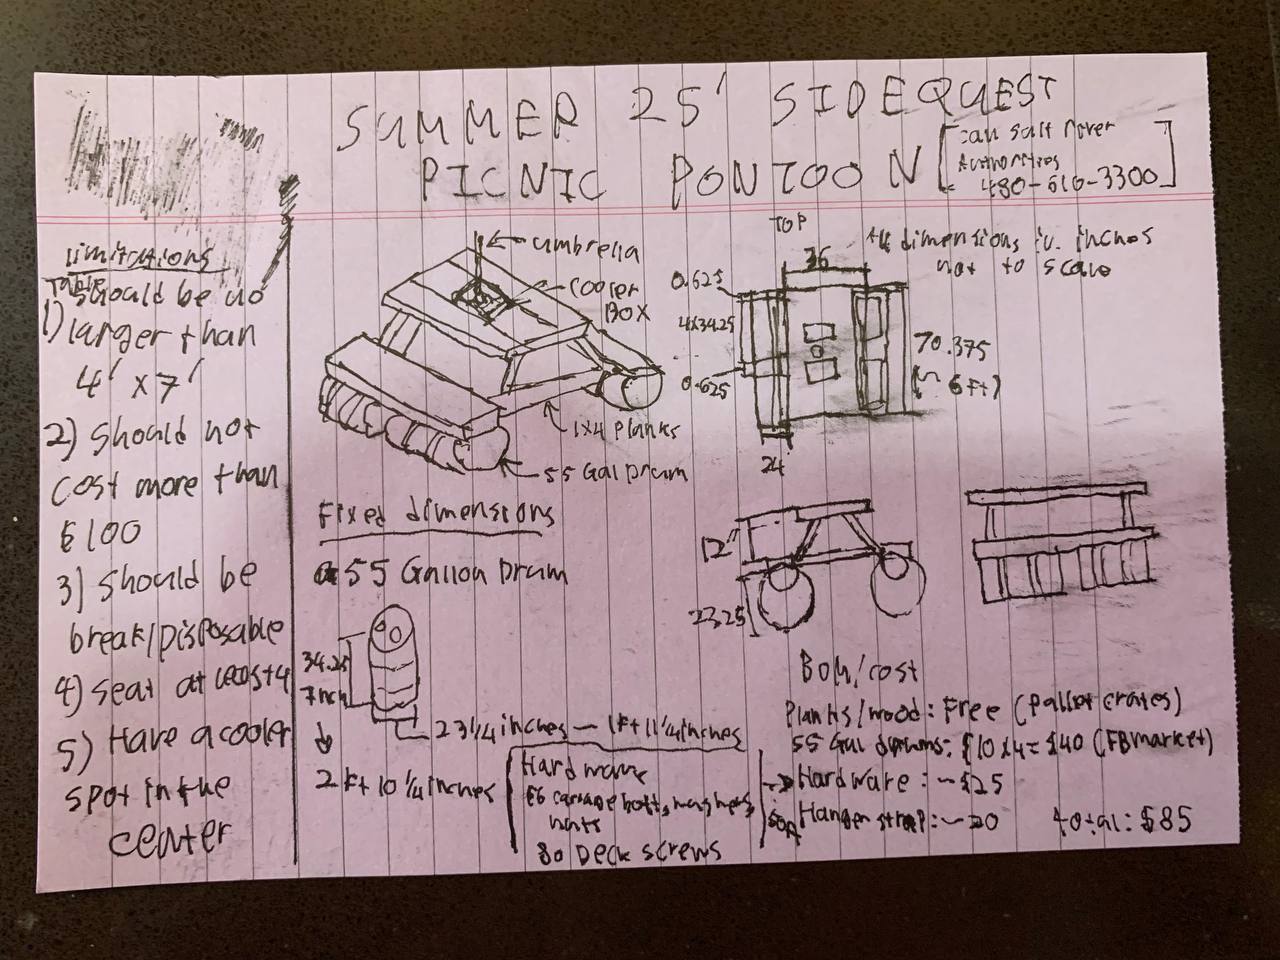 SUMMER 25' SIDEQUEST
PICNIC PONTOON
[call salt River
Authorities
480-610-3300]
limitations
1) Table should be no
larger than
4' x 7'
2) should not
cost more than
$100
3) should be
break/Disposable
4) seat at least 4
5) Have a cooler
spot in the
center
umbrella
cooler
BOX
1x4 planks
55 Gal Drum
TOP
dimensions in. inches
not to scale
36
0.625
4x34.25
0.625
70.375
(~ 6ft)
24
Fixed dimensions
55 Gallon Drum
34.25
inch
23 1/4 inches — 1ft 11 1/4 inches
2 ft 10 1/4 inches
12"
23.25
Hardware
carriage bolts, washers,
nuts
80 Deck screws
BOM/cost
Planks/wood: Free (pallet crates)
55 Gal drums: $10 x 4 = $40 (FB market)
Hardware: ~$25
Hanger strap: ~20
total: $85